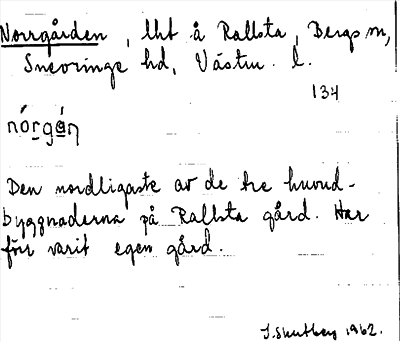 Norrgården, lht å Rallsta, Bergs sn,
Snevringe hd, Västm. l.
134
nórgán
Den nordligaste av de tre huvud-
byggnaderna på Rallsta gård. Har
förr varit egen gård.
1962.